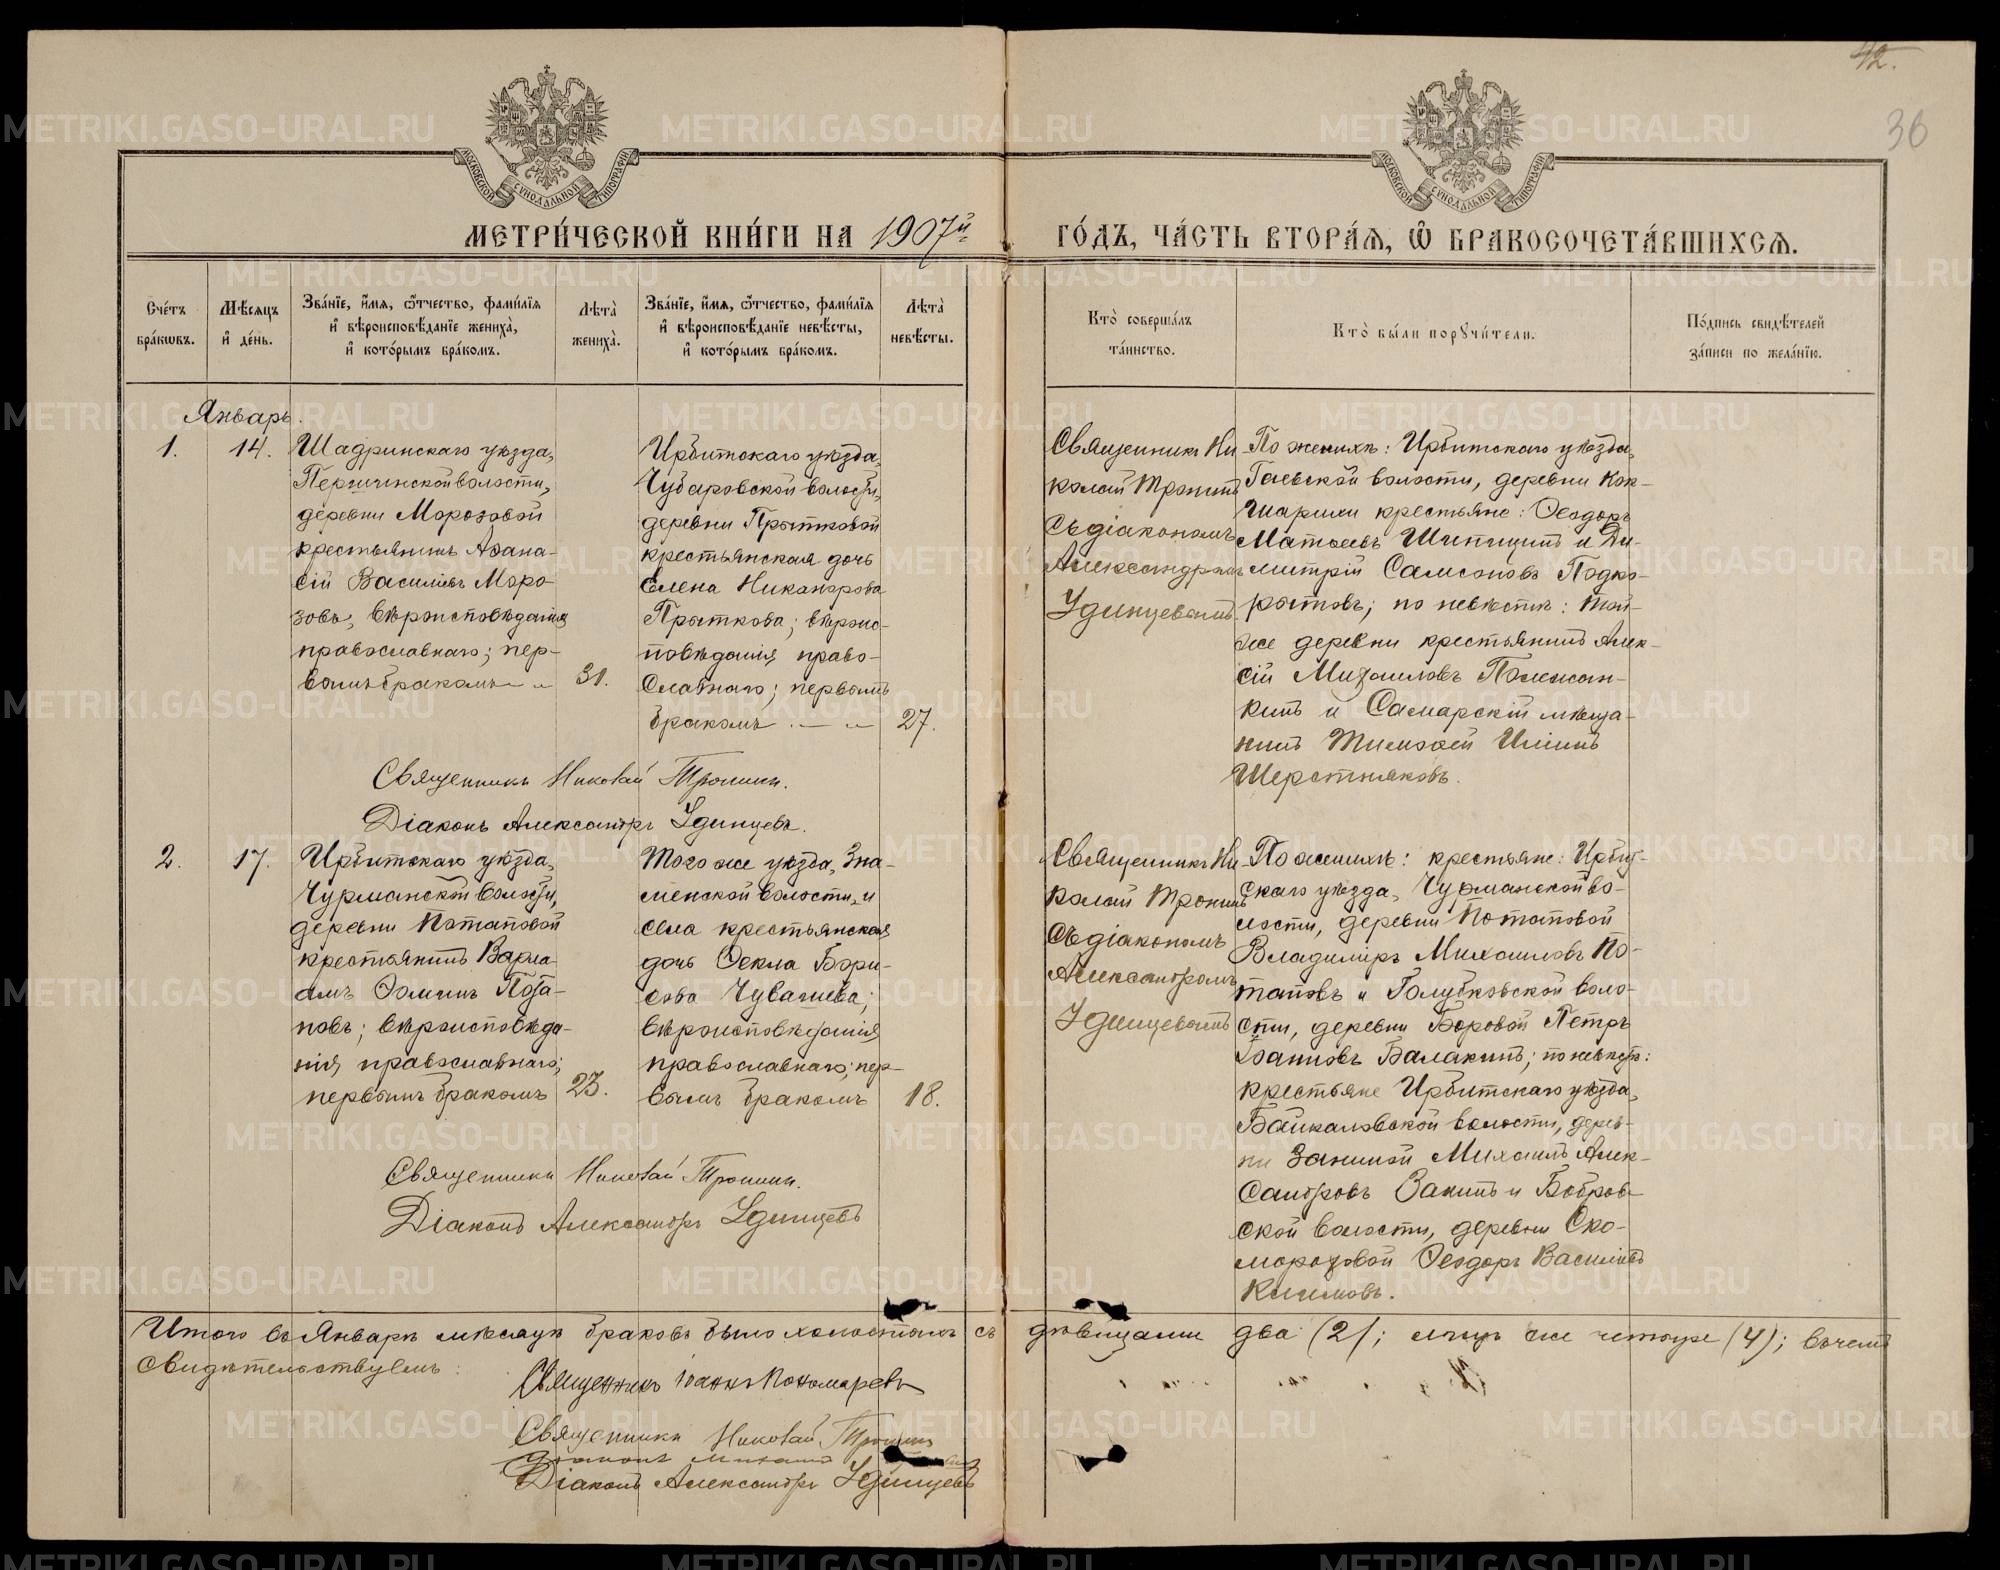 42.
36
МОСКОВСКОЙ СѴНОДАЛЬНОЙ ТИПОГРАФІИ
МОСКОВСКОЙ СѴНОДАЛЬНОЙ ТИПОГРАФІИ
МЕТРИ́ЧЕСКОЙ КНИ́ГИ НА 1907й
ГО́ДЪ, ЧА́СТЬ ВТОРА́Ѧ, Ѿ БРАКОСОЧЕТА́ВШИХСѦ.
Сче́тъ бра́кѡвъ.
Мѣ́сѧцъ и҆ де́нь.
Зва́нїе, и҆́мѧ, ѻ҆́тчество, фами́лїѧ и҆ вѣроисповѣ́данїе жениха̀, и҆ кото́рымъ бра́комъ.
Лѣ́та̀ жениха̀.
Зва́нїе, и҆́мѧ, ѻ҆́тчество, фами́лїѧ и҆ вѣроисповѣ́данїе невѣ́сты, и҆ кото́рымъ бра́комъ.
Лѣ́та̀ невѣ́сты.
Кто̀ соверша́лъ та́инство.
Кто̀ бы́ли порꙋчи́тели.
По́дпись свидѣ́телей за́писи по жела́нїю.
Январь.
1.
14.
Шадринскаго уѣзда,
деревни Морозовой
крестьянинъ Аѳана-
сій Василіевъ Моро-
зовъ, вѣроисповѣданія
православнаго; пер-
вымъ бракомъ
31.
Ирбитскаго уѣзда,
Чубаровской волости,
деревни Прытковой
крестьянская дочь
Елена Никанорова
Прыткова; вѣроис-
повѣданія право-
славнаго; первымъ
бракомъ
27.
Священникъ Ни
колай Тронинъ
съ діакономъ
Александромъ
Удинцевымъ.
По женихѣ: Ирбитскаго уѣзда,
Гаевской волости, деревни Кок-
шарихи крестьяне: Ѳеодоръ
Матѳеевъ Шипицинъ и Ди-
митрій Самсоновъ Подко-
рытовъ; по невѣстѣ: той-
же деревни крестьянинъ Алек-
сій Михаиловъ
и Самарскій мѣща-
нинъ Тимоѳей Ильинъ
Шерстняковъ.
Священникъ Николай Тронинъ.
Діаконъ Александръ Удинцевъ.
2.
17.
Ирбитскаго уѣзда,
Чурманской волости,
деревни Потаповой
крестьянинъ Варла-
амъ Ѳоминъ Пота-
повъ; вѣроисповѣда-
нія православнаго;
первымъ бракомъ
23.
Того же уѣзда, Зна-
менской волости, и
села крестьянская
дочь Ѳекла Бори-
сова Чувашева;
вѣроисповѣданія
православнаго; пер-
вымъ бракомъ
18.
Священникъ Ни
колай Тронинъ
съ діакономъ
Александромъ
Удинцевымъ
По женихѣ: крестьяне: Ирбит-
скаго уѣзда, Чурманской во-
лости, деревни Потаповой
Владимиръ Михаиловъ По-
таповъ и Голубковской воло-
сти, деревни Боровой Петръ
Іоанновъ Балакинъ; по невѣстѣ:
крестьяне Ирбитскаго уѣзда,
Байкаловской волости, дерев-
ни Заниной Михаилъ Алек-
сандровъ Занинъ и Бобров-
ской волости, деревни Ско-
мороховой Ѳеодоръ Василіевъ
Климовъ.
Священникъ Николай Тронинъ.
Діаконъ Александръ Удинцевъ
Итого въ Январѣ мѣсяцѣ браковъ было холостыхъ съ дѣвицами два (2); лицъ же четыре (4); въ чемъ
свидѣтельствуемъ:
Священникъ Іоаннъ Пономаревъ
Священникъ Николай Тронинъ
Діаконъ Александръ Удинцевъ
METRIKI.GASO-URAL.RU